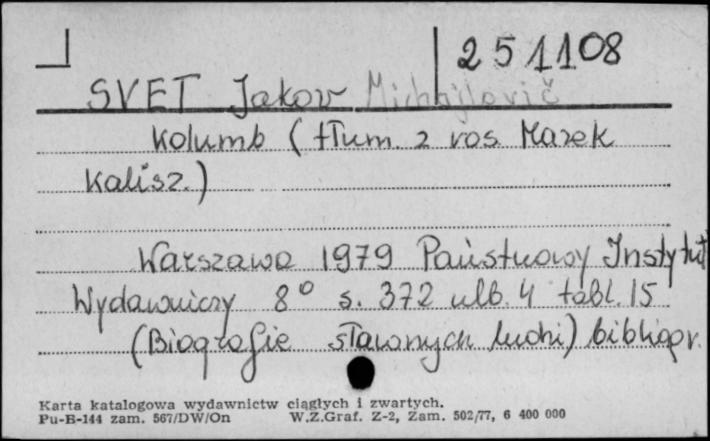 251108
SVET Jakov Michajlovič
Kolumb (tłum. z ros. Marek
Kalisz.)
Warszawa 1979 Państwowy Instytut
Wydawniczy 8° s. 372 ulb. 4 tabl. 15
(Biografie sławnych ludzi) bibliogr.
Karta katalogowa wydawnictw ciągłych i zwartych.
Pu-B-144 zam. 567/DW/On W.Z.Graf. Z-2, Zam. 502/77, 6 400 000